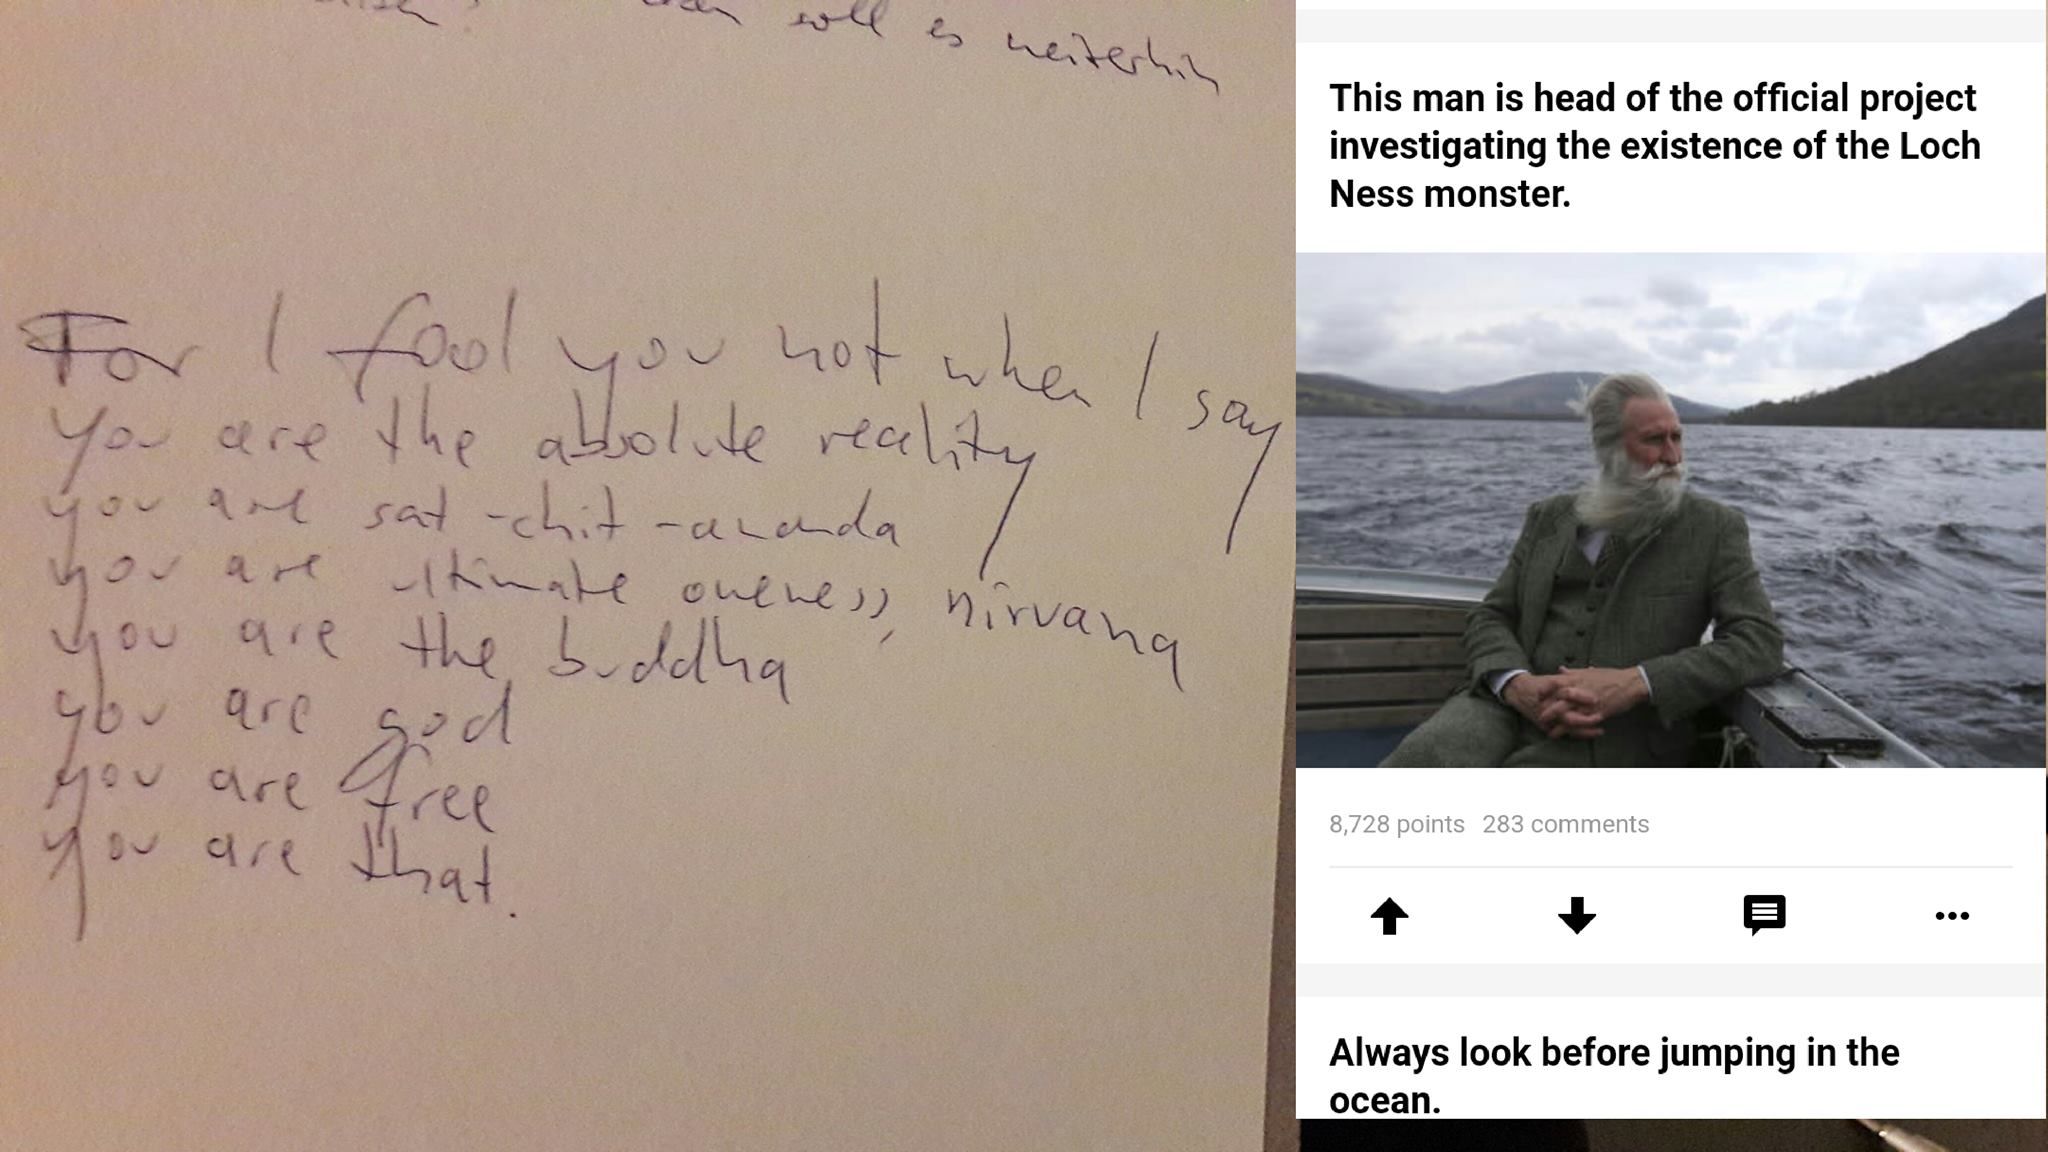 soll es weiterhin
For I fool you not when I say
you are the absolute reality
you are sat-chit-ananda
you are ultimate oneness, nirvana
you are the buddha
you are god
you are free
you are that.
This man is head of the official project
investigating the existence of the Loch
Ness monster.
8,728 points 283 comments
Always look before jumping in the
ocean.